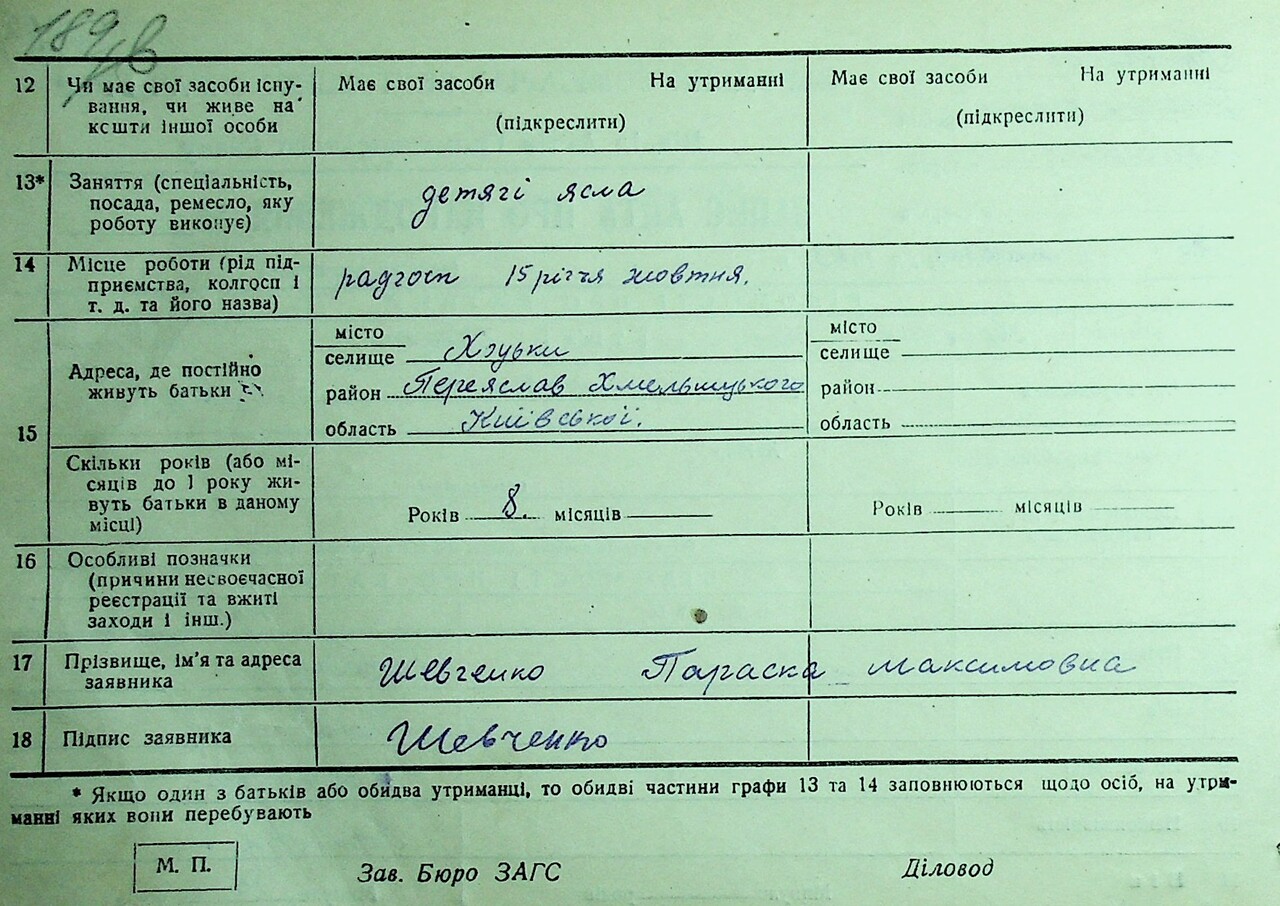 189/в
12 Чи має свої засоби існу- Має свої засоби На утриманні Має свої засоби На утриманні
вання, чи живе на
кошти іншої особи (підкреслити) (підкреслити)
13* Заняття (спеціальність, детячі ясла
посада, ремесло, яку
роботу виконує)
14 Місце роботи (рід під- радгосп 15 річчя жовтня.
приємства, колгосп і
т. д. та його назва)
15 Адреса, де постійно
живуть батьки
місто
селище Хоцьки
район Переяслав Хмельницького
область Київської.
місто
селище
район
область
Скільки років (або мі-
сяців до 1 року жи-
вуть батьки в даному
місці)
Років 8. місяців Років місяців
16 Особливі позначки
(причини несвоєчасної
реєстрації та вжиті
заходи і інш.)
17 Прізвище, ім'я та адреса Шевченко Параска Максимовна
заявника
18 Підпис заявника Шевченко
* Якщо один з батьків або обидва утриманці, то обидві частини графи 13 та 14 заповнюються щодо осіб, на утри-
манні яких вони перебувають
М. П. Зав. Бюро ЗАГС Діловод